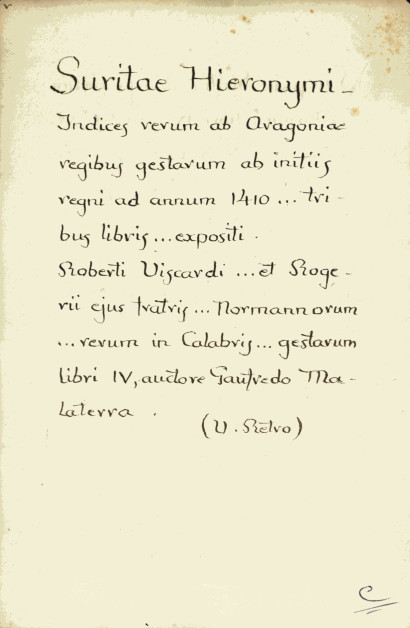 Suritae Hieronymi -
Indices rerum ab Aragoniae
regibus gestarum ab initiis
regni ad annum 1410 ... tri -
bus libris ... expositi .
Roberti Viscardi ... et Roge -
rii ejus fratris ... Normannorum
... rerum in Calabris ... gestarum
libri IV, auctore Gaufredo Ma -
laterra .
(V. Retro)
C